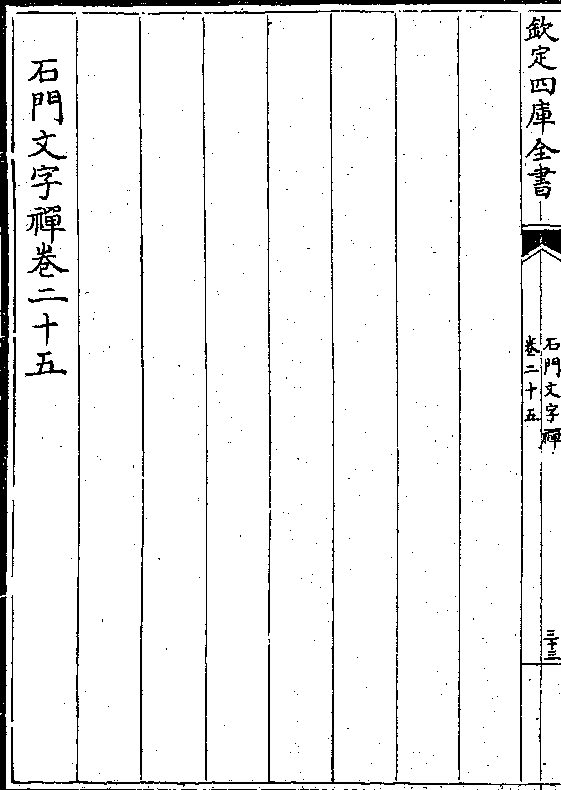 欽定四庫全書
石門文字禪
卷二十五
三十三
石門文字禪卷二十五